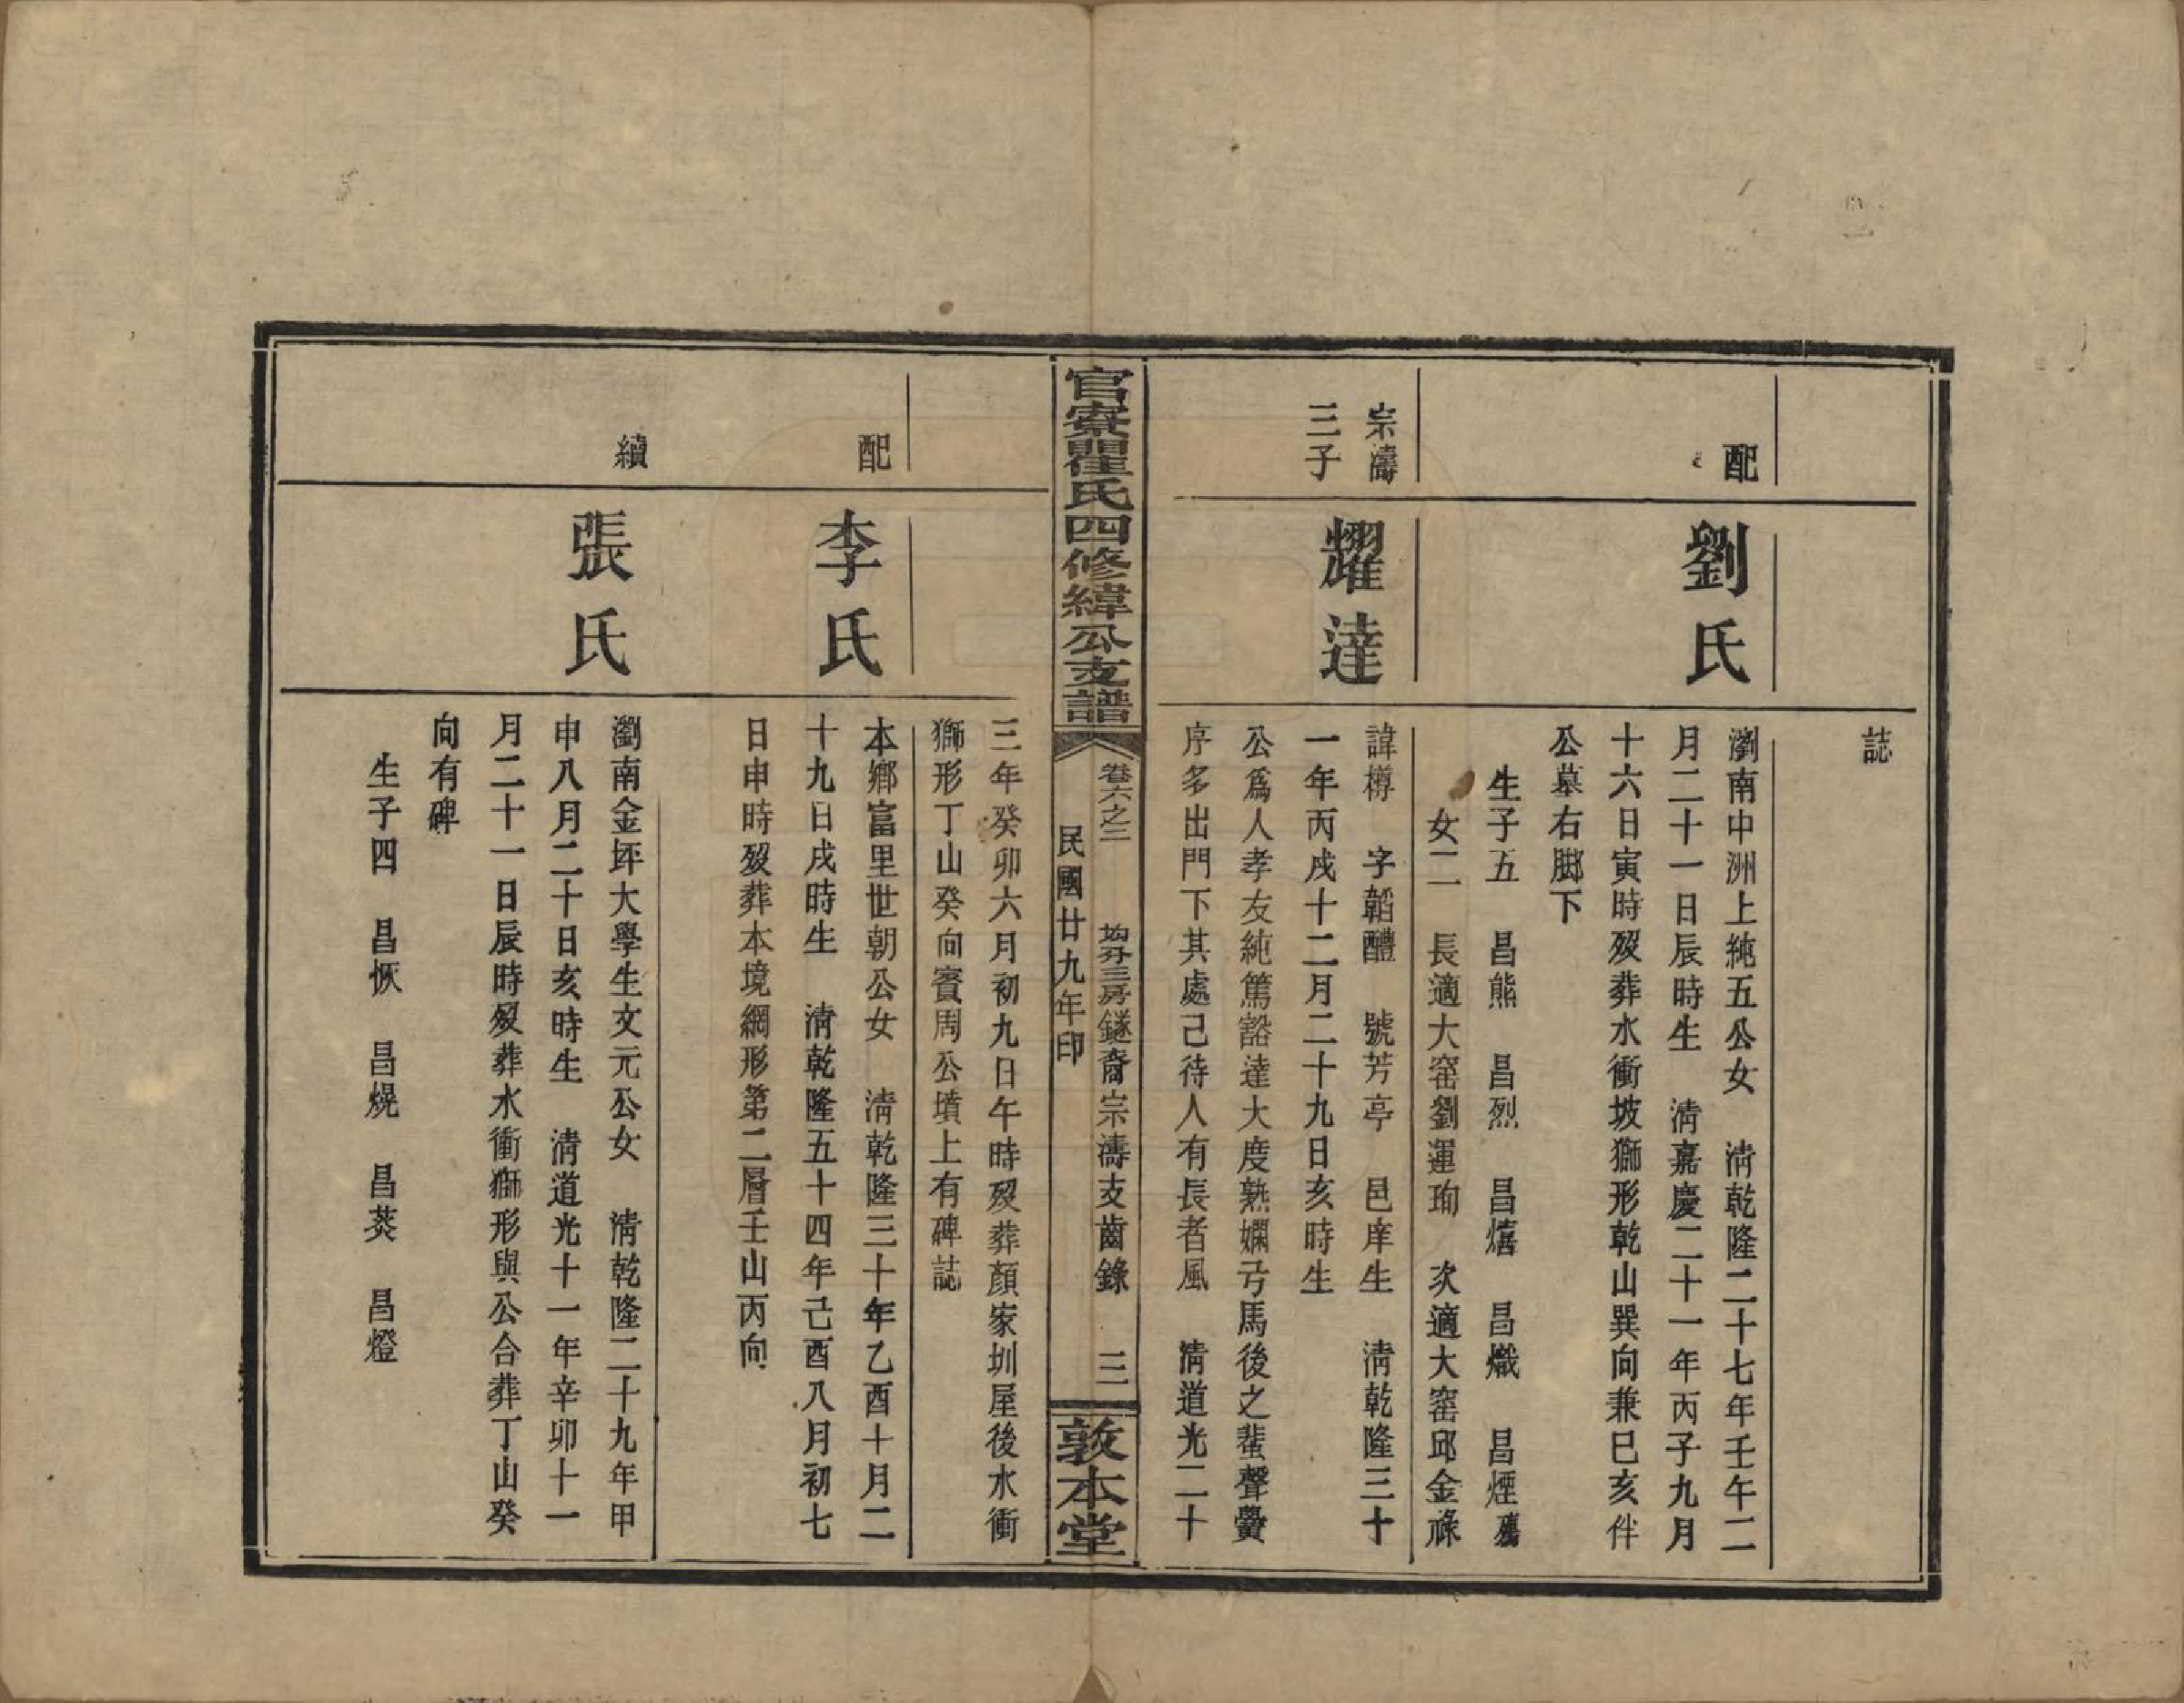 誌
配
劉氏
瀏南中洲上純五公女　清乾隆二十七年壬午二
月二十一日辰時生　清嘉慶二十一年丙子九月
十六日寅時歿葬水衝坡獅形乾山巽向兼巳亥伴
公墓右脚下
生子五　昌熊　昌烈　昌熺　昌熾　昌煙殤
女二　長適大窑劉運珣　次適大窑邱金祿
宗濤
三子
耀達
諱樽　字韜醴　號芳亭　邑庠生　清乾隆三十
一年丙戌十二月二十九日亥時生
公爲人孝友純篤豁達大度熟嫻弓馬後之蜚聲黌
序多出門下其處己待人有長者風　清道光二十
官寮瞿氏四修緯公支譜
卷六之二　均分三房鐩裔宗濤支齒錄　三
民國廿九年印
敦本堂
三年癸卯六月初九日午時歿葬顏家圳屋後水衝
獅形丁山癸向賓周公墳上有碑誌
配
李氏
本鄉富里世朝公女　清乾隆三十年乙酉十月二
十九日戌時生　清乾隆五十四年己酉八月初七
日申時歿葬本境網形第二層壬山丙向
續
張氏
瀏南金坪大學生文元公女　清乾隆二十九年甲
申八月二十日亥時生　清道光十一年辛卯十一
月二十一日辰時歿葬水衝獅形與公合葬丁山癸
向有碑
生子四　昌恢　昌燒　昌　昌燈